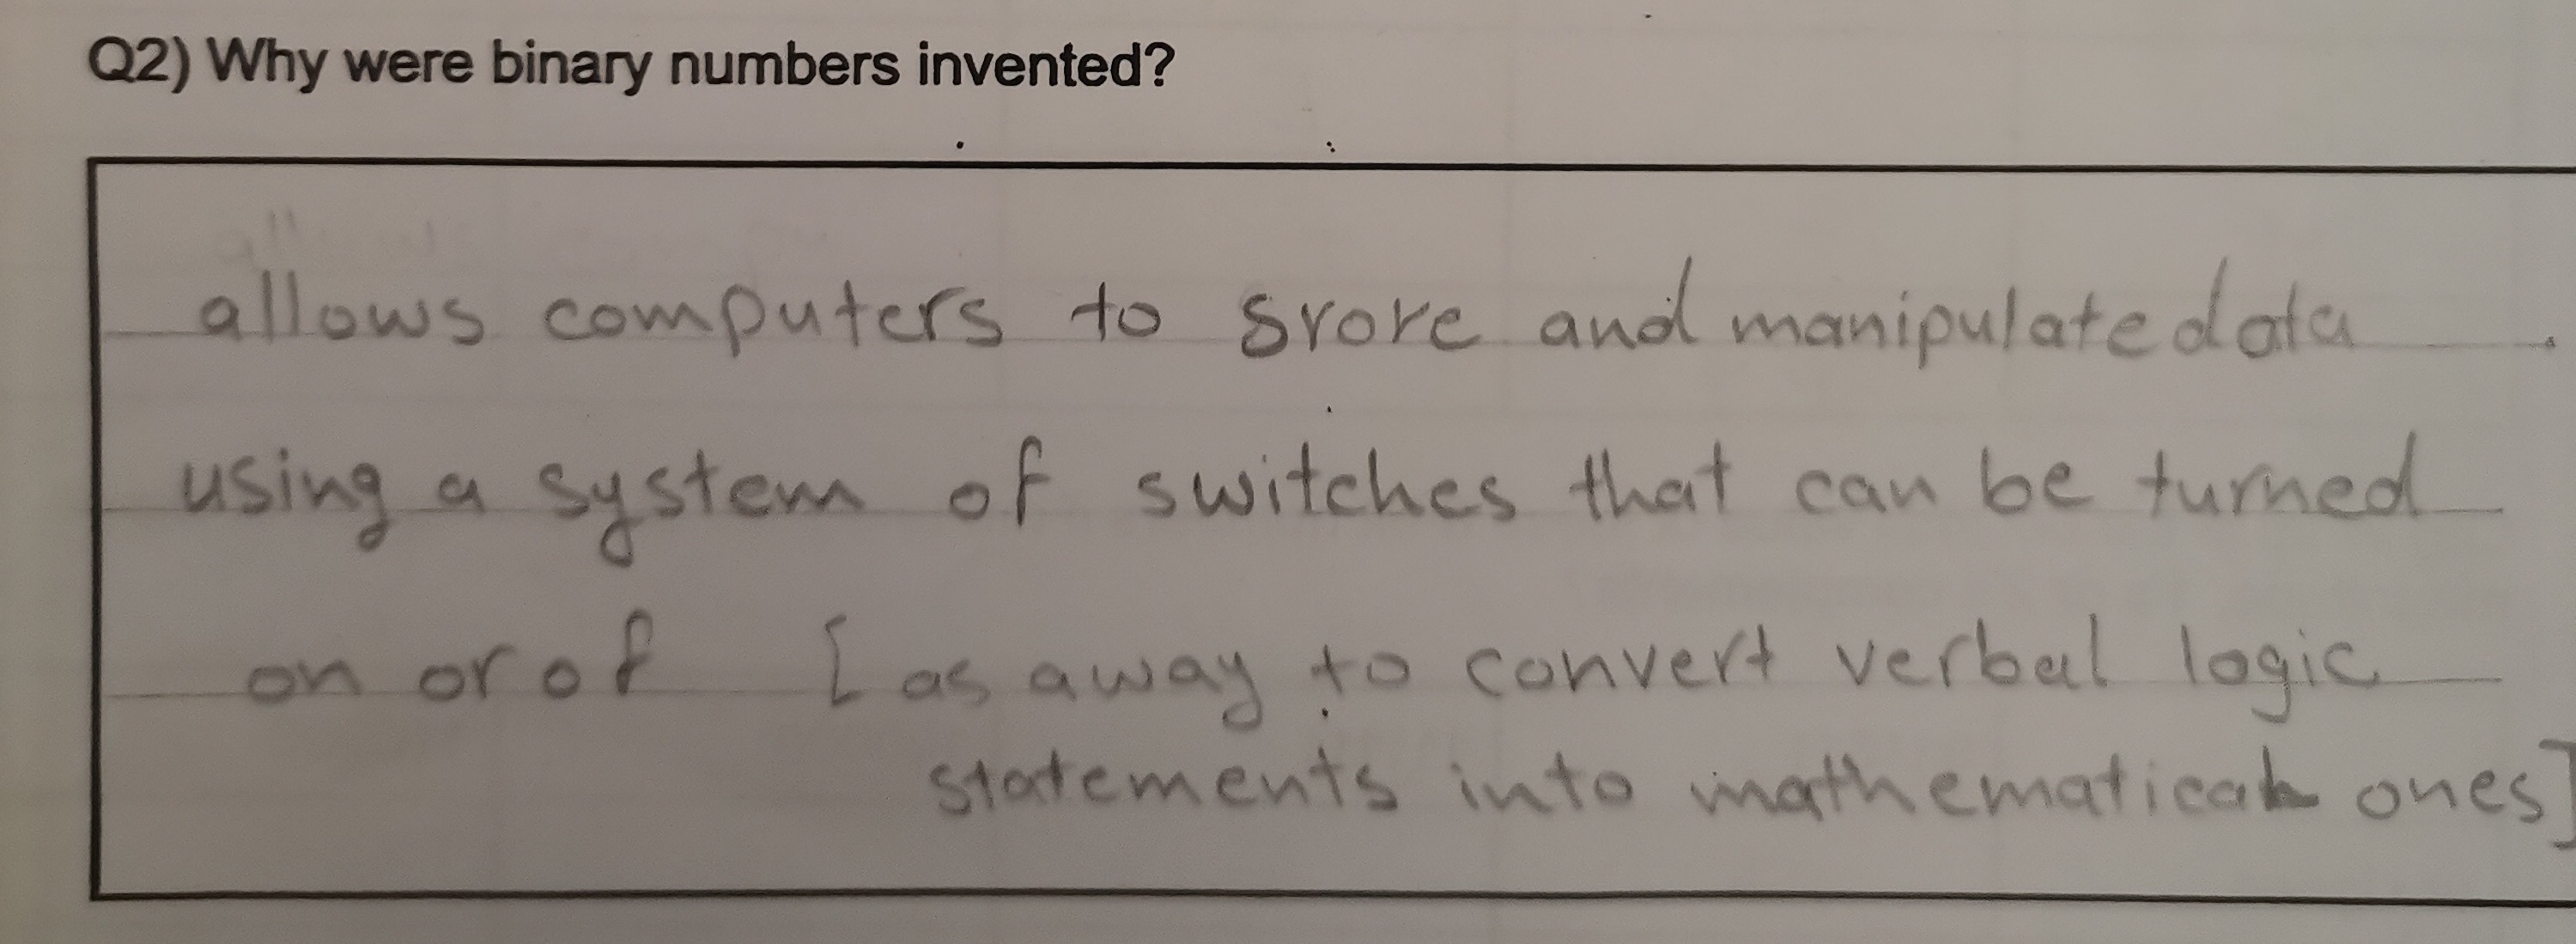 Q2) Why were binary numbers invented?
allows computers to srore and manipulate data
using a system of switches that can be turned
on or of [as away to convert verbal logic
statements into mathematical ones]